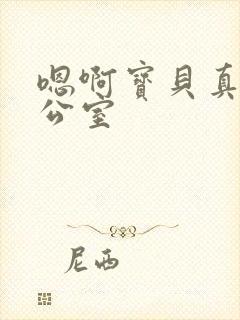 嗯啊寶貝真
公室
尼西